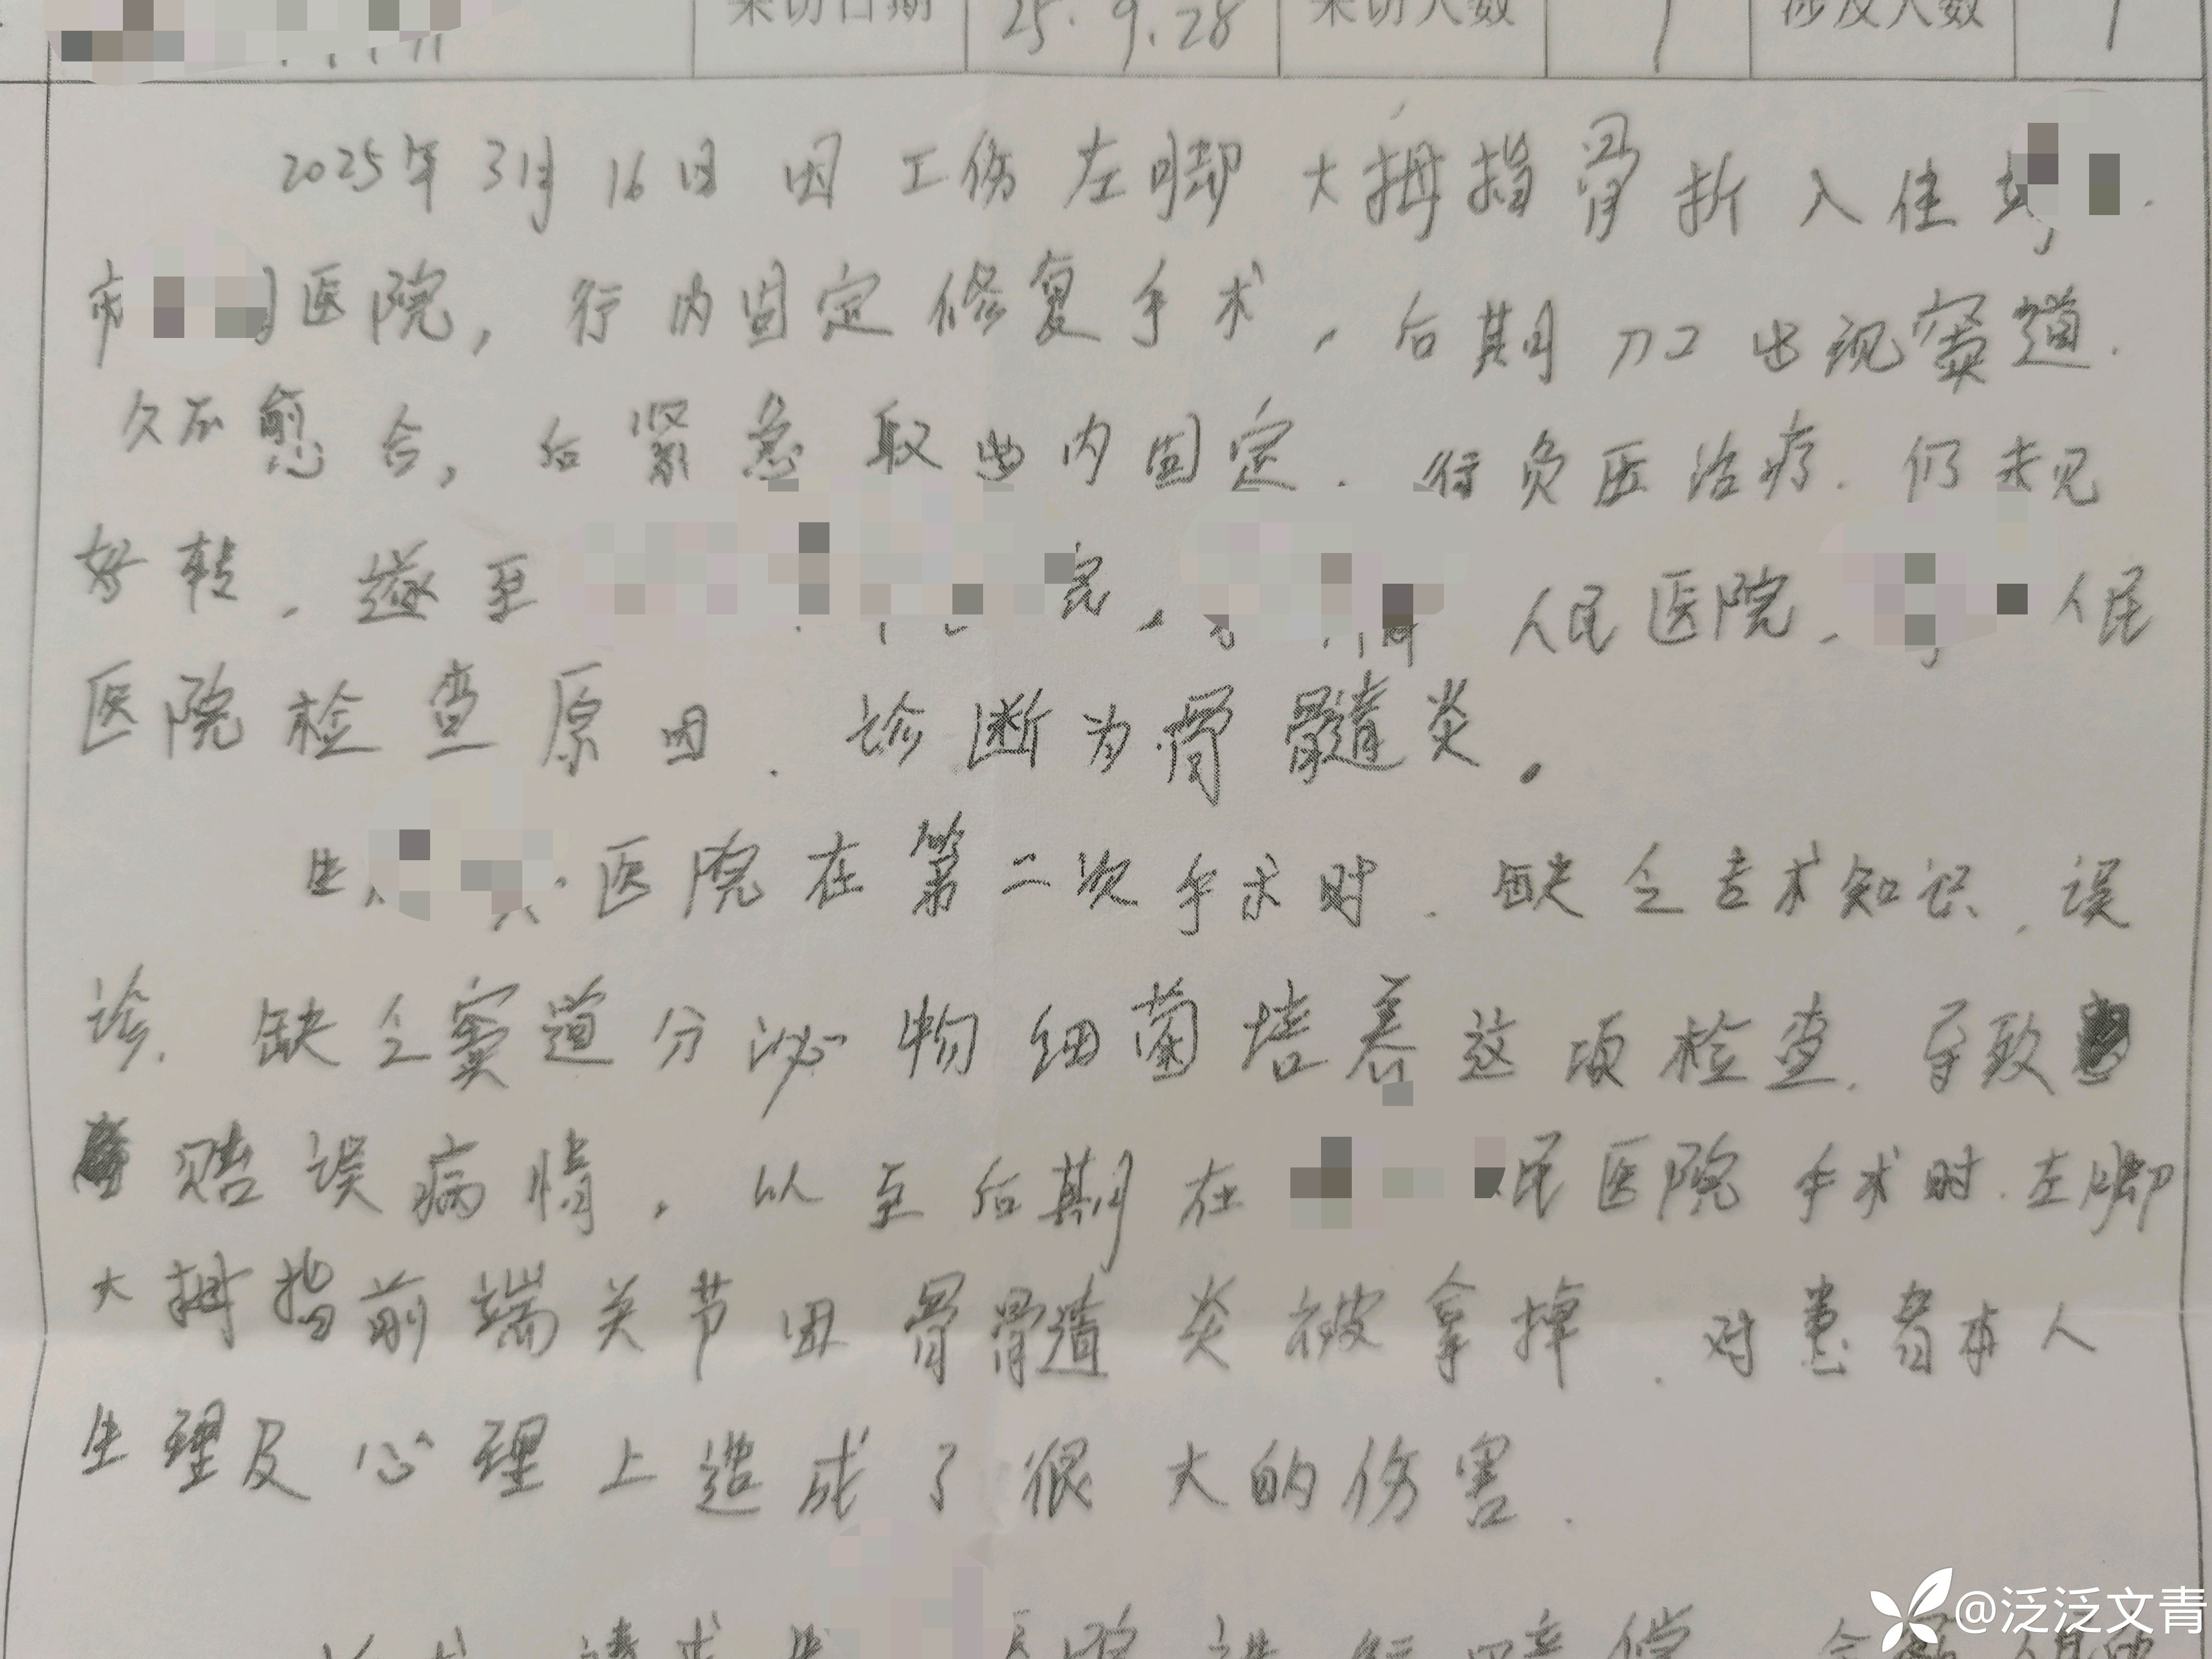 来访日期 25.9.28 来访人数 1 涉及人数 1
2025年3月16日因工伤左脚大拇指骨折入住
市医院，行内固定修复手术，后期刀口出现窦道.
久不愈合，后紧急取出内固定.行负压治疗.仍未见
好转.遂至 人民医院, 人民
医院检查原因.诊断为骨髓炎.
医院在第二次手术时.缺乏专术知识,误
诊.缺乏窦道分泌物细菌培养这项检查.导致
贻误病情.以至后期在 民医院手术时.左脚
大拇指前端关节因骨骨髓炎被拿掉.对患者本人
生理及心理上造成了很大的伤害.
@泛泛文青